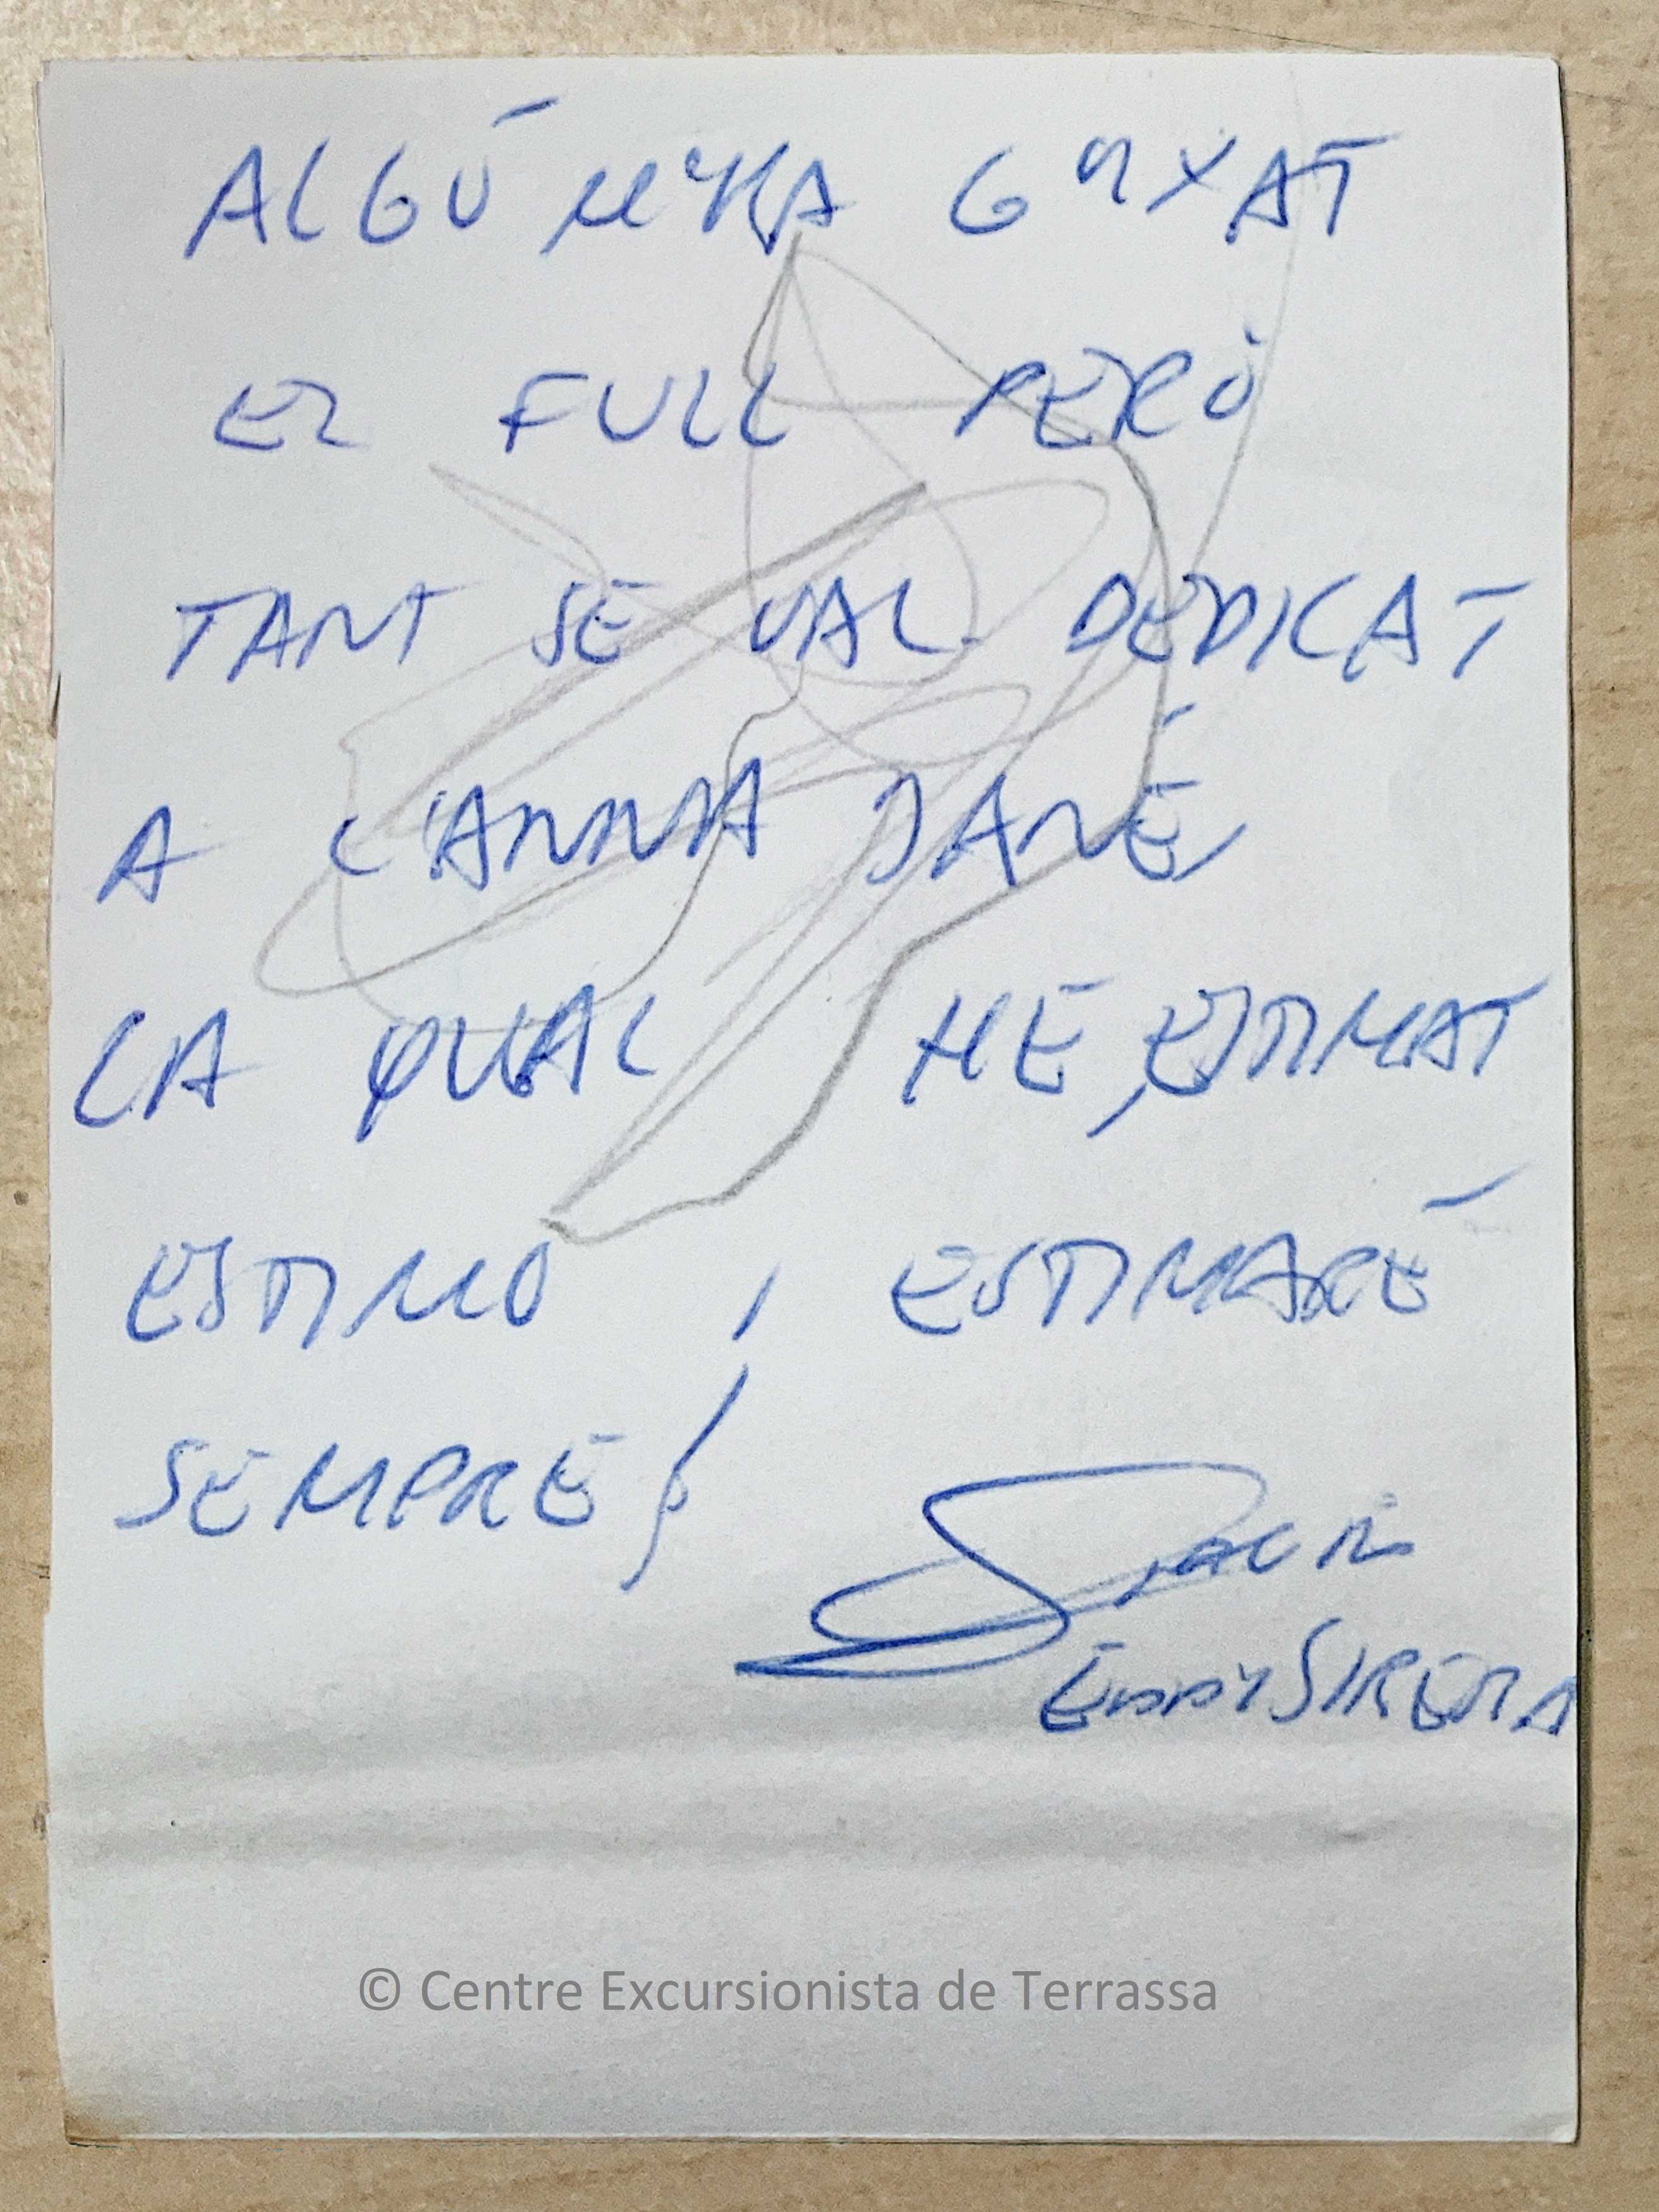 ALGÚ M'HA GUIXAT
EL FULL PERÒ
TANT SE VAL DEDICAT
A L'ANNA JANÉ,
LA QUAL HE, ESTIMAT
ESTIMO, ESTIMARÉ
SEMPRE!
SIRERA
© Centre Excursionista de Terrassa